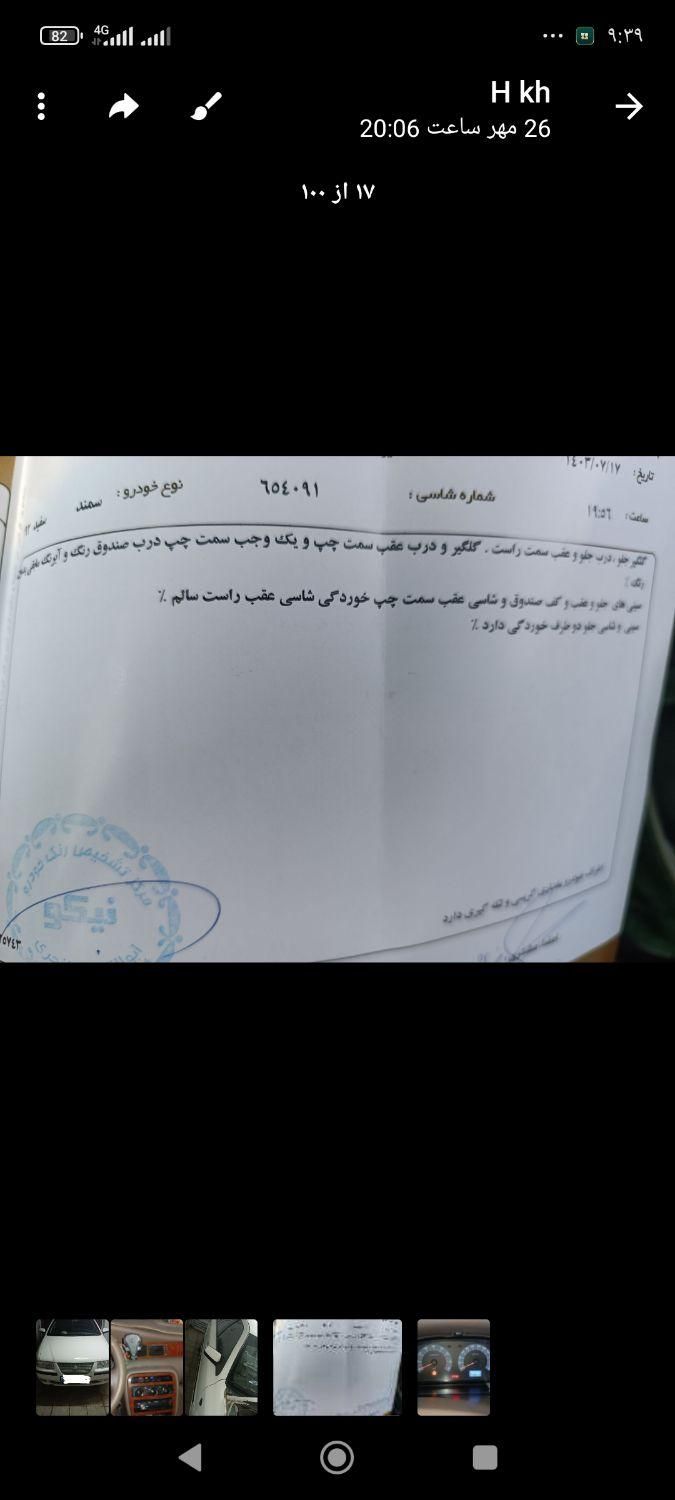 82
4G
۹:۳۹
H kh
26 مهر ساعت 20:06
۱۷ از ۱۰۰
تاریخ: ۱۴۰۳/۰۷/۱۷
ساعت: ۱۹:۵٦
شماره شاسی: ٦٥٤٠٩١
نوع خودرو: سمند
سفید ۹۲
گلگیر جلو، درب جلو و عقب سمت راست، گلگیر و درب عقب سمت چپ و یک وجب سمت چپ درب صندوق رنگ و آبرنگ مابقی بدون
رنگ ٪
سینی های جلو و عقب و کف صندوق و شاسی عقب سمت چپ خوردگی شاسی عقب راست سالم ٪
سینی و شاسی جلو دو طرف خوردگی دارد ٪
مرکز تشخیص رنگ خودرو
نیکو
۲۵۷٤۳